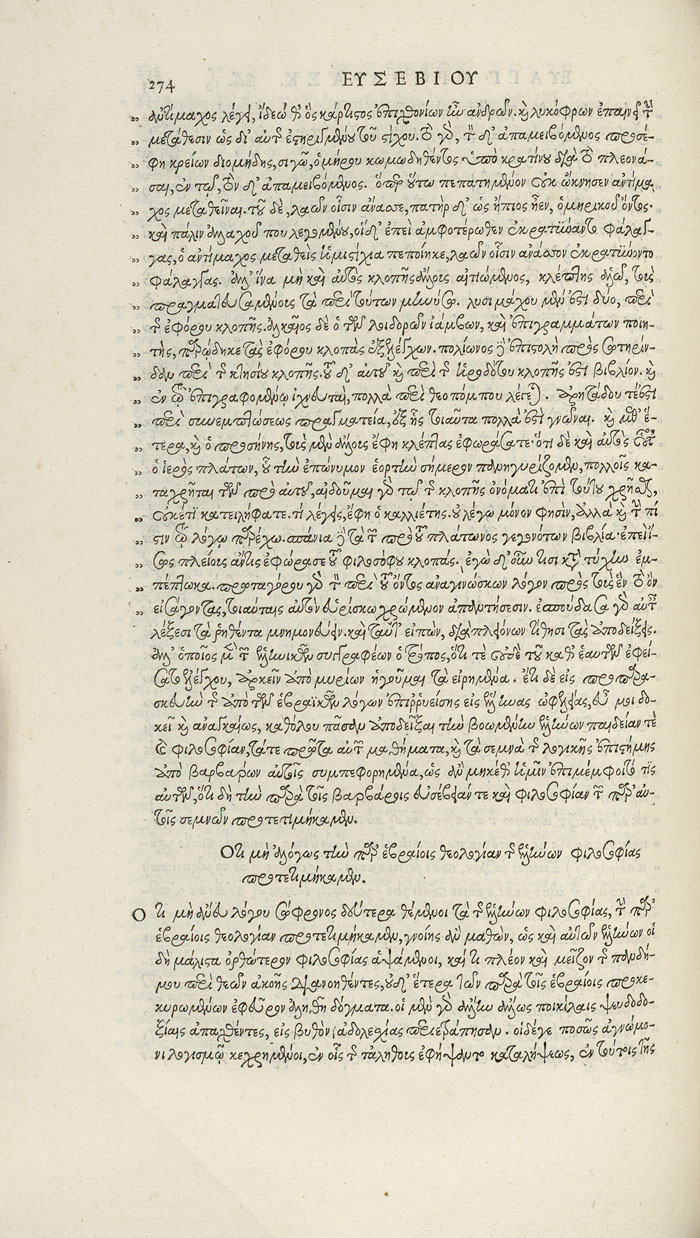 274 ΕΥΣΕΒΙΟΥ
„ λυσίμαχος λέγει, ἰδέω θ᾽ ὃς κάρτιστος ἐπιχθονίων ἦν ἀνδρῶν. καὶ λυκόφρων ἐπαινεῖ τὴν
„ μετάθεσιν ὡς δι᾽ αὐτῆς ἐστηριγμένου τοῦ στίχου. τὸ γὰρ, τὸν δ᾽ ἀπαμειβόμενος προσέ-
„ φη κρείων διομήδης, σιγῶ, ὁμήρου κωμῳδηθέντος ὑπὸ κρατίνου διὰ τὸ πλεονά-
„ σαι, ἐν τῷ, τὸν δ᾽ ἀπαμειβόμενος. ὅπερ οὕτω πεπατημένον οὐκ ὤκνησεν ἀντίμα
„ χος μεταθεῖναι. τοῦ δὲ, λαῶν οἷσιν ἄνασσε, πατὴρ δ᾽ ὡς ἤπιος ἦεν, ὁμηρικοῦ ὄντος.
„ καὶ πάλιν ἀλλαχοῦ που λεγομένου, οἱ δ᾽ ἐπεὶ ἀμφοτέρωθεν ἐκρατύναντο φάλαγ-
„ γας, ὁ ἀντίμαχος μεταθεὶς ἡμιστίχια πεποίηκε, λαῶν οἷσιν ἄνασσον ἐκρατύναντο
„ φάλαγγας. ἀλλ᾽ ἵνα μὴ καὶ αὐτὸς κλοπῆς ἄλλους αἰτιώμενος, κλέπτης ἁλῶ, τοὺς
„ πραγματευσαμένους τὰ περὶ τούτων μηνύσω. λυσιμάχου μέν ἐστι δύο, περὶ
„ τῆς ἐφόρου κλοπῆς. ἀλκαῖος δὲ ὁ τῶν λοιδόρων ἰάμβων, καὶ ἐπιγραμμάτων ποιη-
„ τὴς, παρῴδηκε τὰς ἐφόρου κλοπὰς ἐξελέγχων. πολίωνος δὲ ἐπιστολὴ πρὸς σωτηρίν-
„ δαν περὶ τῆς κτησίου κλοπῆς. τοῦ δ᾽ αὐτοῦ καὶ περὶ τῆς ἡροδότου κλοπῆς ἐστὶ βιβλίον. καὶ
„ ἐν τῷ ἐπιγραφομένῳ ἰχνευταὶ, πολλὰ περὶ θεοπόμπου λέγεται. ἀρητάδου τέ ἐστι
„ περὶ συνεμπτώσεως πραγματεία, ἐξ ἧς τοιαῦτα πολλὰ ἐστὶ γνῶναι. καὶ μεθ᾽ ἕ-
„ τερα, καὶ ὁ προσήνης, τοὺς μὲν ἄλλους ἔφη κλέπτας ἐφωράσατε· ὅτι δὲ καὶ αὐτὸς οὗτος
„ ὁ ἱερὸς πλάτων, οὗ τὴν ἐπώνυμον ἑορτὴν σήμερον πανηγυρίζομεν, πολλοῖς κα-
„ ταχρῆται τῶν πρὸ αὐτοῦ, αἰδοῦμαι γὰρ τῷ τῆς κλοπῆς ὀνόματι ἐπὶ τούτου χρῆσθαι,
„ οὐκέτι κατειλήφατε. τί λέγεις, ἔφη ὁ καλλιέτης. οὐ λέγω μόνον φησὶν, ἀλλὰ καὶ τὴν πί
„ στιν τῷ λόγῳ παρέχω. σπάνια δὲ τὰ τῶν πρὸ τοῦ πλάτωνος γεγονότων βιβλία. ἐπεὶ ἴ-
„ σως πλείους ἄν τις ἐφώρασε τοῦ φιλοσόφου κλοπάς. ἐγὼ δ᾽ οὖν τισι κατὰ τύχην ἐμ-
„ πέπτωκα. πρωταγόρου γὰρ τὸν περὶ τοῦ ὄντος ἀναγινώσκων λόγον πρὸς τοὺς ἓν τὸ ὂν
„ εἰσάγοντας, τοιαύταις αὐτὸν εὑρίσκω χρώμενον ἀπαντήσεσιν. ἐσπούδασα γὰρ αὐταῖς
λέξεσι τὰ ῥηθέντα μνημονεύειν. καὶ ταῦτ᾽ εἰπὼν, διὰ πλειόνων τίθησι τὰς ἀποδείξεις.
ἀλλ᾽ ὁποῖος μὲν τῶν ἑλληνικῶν συγγραφέων ὁ τρόπος, ὅτι τε οὐδὲ τοῦ καθ᾽ ἑαυτῶν ἐφεί-
σαντο ἐλέγχου, ἀρκεῖν ἀπὸ μυρίων ἡγοῦμαι τὰ εἰρημένα. ἔτι δὲ εἰς προπαρα-
σκευὴν τῆς ἀπὸ τῶν ἑβραϊκῶν λόγων ἐπιρρευείσης εἰς ἕλληνας ὠφελείας, εὖ μοι δο-
κεῖ καὶ ἀναγκαίως, καθόλου πᾶσαν ἀποδεῖξαι τὴν βοωμένην ἑλλήνων παιδείαν τὲ
καὶ φιλοσοφίαν, τά τε πρῶτα αὐτῶν μαθήματα, καὶ τὰ σεμνὰ τῆς λογικῆς ἐπιστήμης
ἀπὸ βαρβάρων αὐτοῖς συμπεφορημένα, ὡς ἂν μηκέθ᾽ ἡμῖν ἐπιμέμφοιτό τις
αὐτῶν, ὅτι δὴ τὴν παρὰ τοῖς βαρβάροις εὐσέβειάν τε καὶ φιλοσοφίαν τῶν παρ᾽ αὐ-
τοῖς σεμνῶν προτετιμήκαμεν.
Ὅτι μὴ ἀλόγως τὴν παρ᾽ ἑβραίοις θεολογίαν τῆς ἑλλήνων φιλοσοφίας
προτετιμήκαμεν.
Ὅτι μὴ ἄνευ λόγου σώφρονος δεύτερα θέμενοι τὰ τῆς ἑλλήνων φιλοσοφίας, τὴν παρ᾽
ἑβραίοις θεολογίαν προτετιμήκαμεν, γνοίης ἂν μαθὼν, ὡς καὶ αὐτῶν ἑλλήνων οἱ
δὴ μάλιστα ὀρθώτερον φιλοσοφίας ἁψάμενοι, καί τι πλέον καὶ μεῖζον τῆς πανδή-
μου περὶ θεῶν ἀκοῆς διανοηθέντες, οὐδ᾽ ἕτερα τῶν παρὰ τοῖς ἑβραίοις προκε-
κυρωμένων ἐφεῦρον ἀληθῆ δόγματα. οἱ μὲν γὰρ ἄλλῃ ἄλλως ποικίλαις ψευδοδο-
ξίαις ἀπαχθέντες, εἰς βυθὸν ἀδολεσχίας περιετράπησαν. οἱ δέ γε ποσῶς εὐγνώμο-
νι λογισμῷ κεχρημένοι, ἐν οἷς τῆς τἀληθοῦς ἐφήψαντο καταλήψεως, ἐν τούτοις τῆς